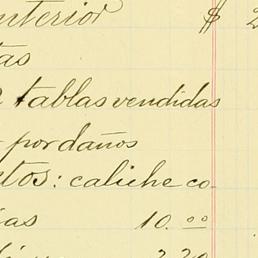 nterior $ 2
tas
2 tablas vendidas
por daños
ntos: caliche co-
ias 10.00
2.20